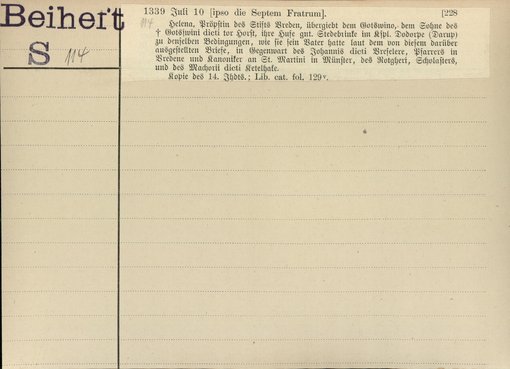 Beiheft
S 114
1339 Juli 10 [ipso die Septem Fratrum]. [228
114
Helena, Pröpstin des Stifts Vreden, übergiebt dem Gotswino, dem Sohne des
† Gotswini dicti tor Horst, ihre Hufe gnt. Stedebrinke im Kspl. Dodorpe (Darup)
zu denselben Bedingungen, wie sie sein Vater hatte laut dem von diesem darüber
ausgestellten Briefe, in Gegenwart des Johannis dicti Vreselere, Pfarrers in
Vredene und Kanoniker an St. Martini in Münster, des Rotgheri, Scholasters,
und des Machorii dicti Ketelhake.
Kopie des 14. Jhdts.; Lib. cat. fol. 129v.